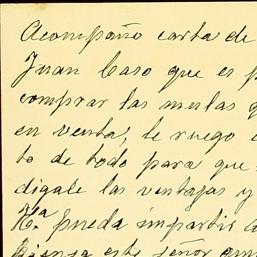 Acompaño carta de
Juan Caso que es p
comprar las mulas q
en venta, le ruego
to de todo para que
digale las ventajas y
Ha. pueda impartir a
piensa este señor